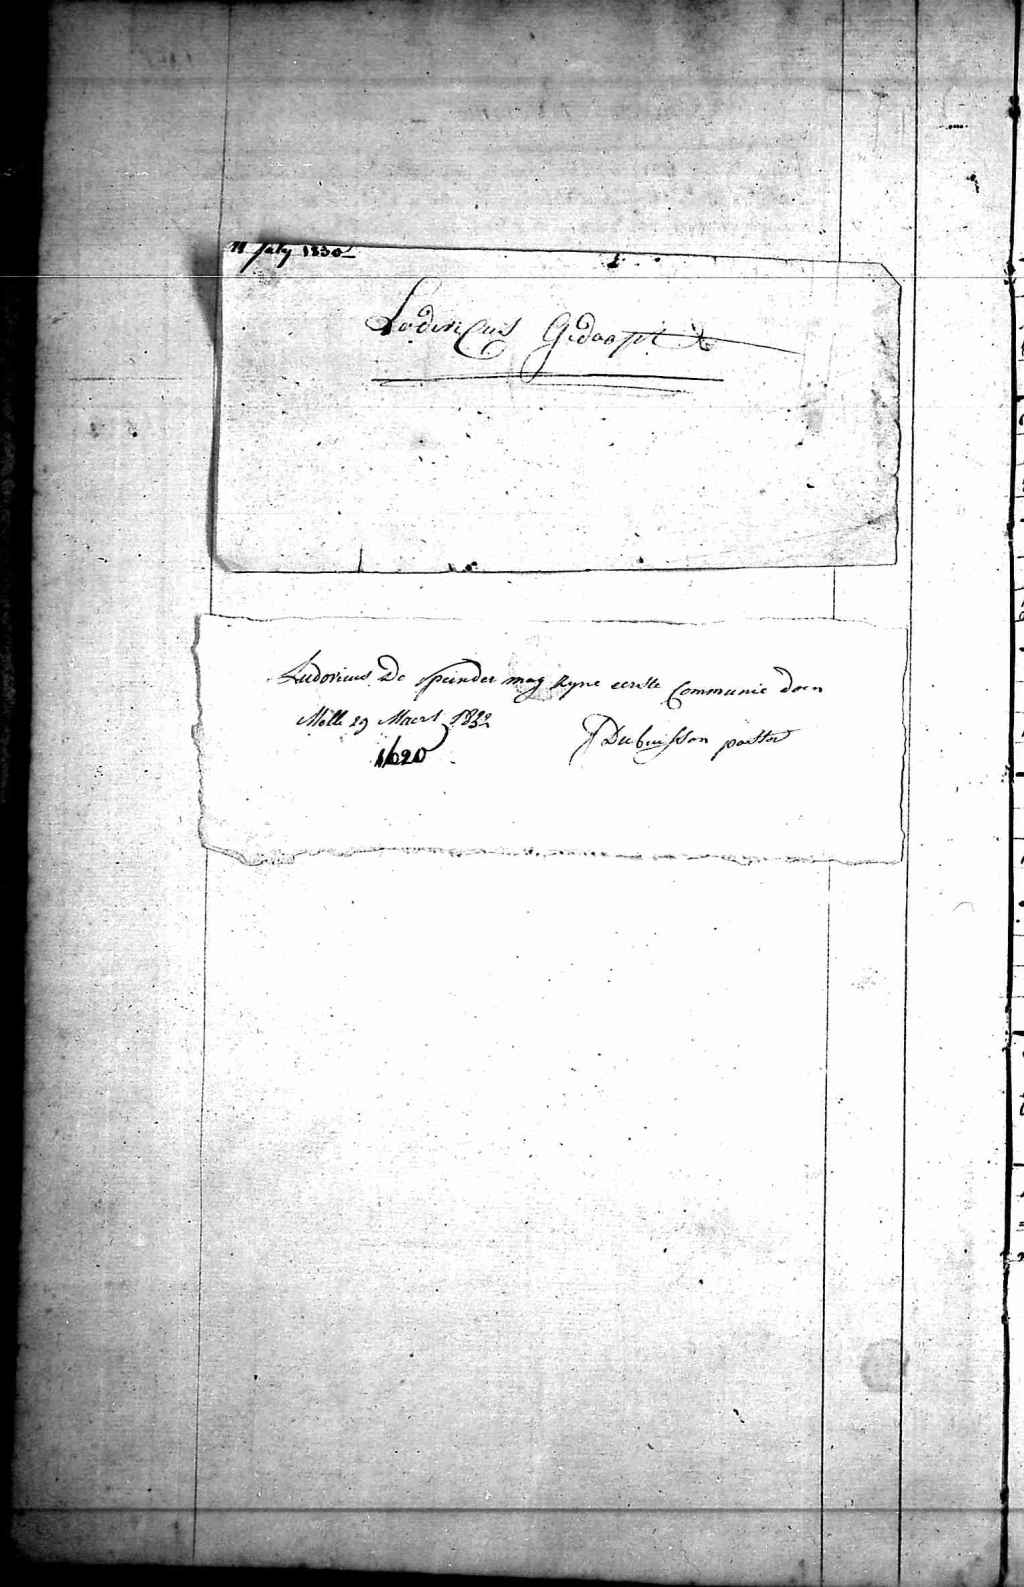 11 July 1830
Lodovicus Gedoopt
Ludovicus De Speinder mag Zyne eerste Communie doen
Molle 29 Maert 1832
1620
Dubuisson pastor